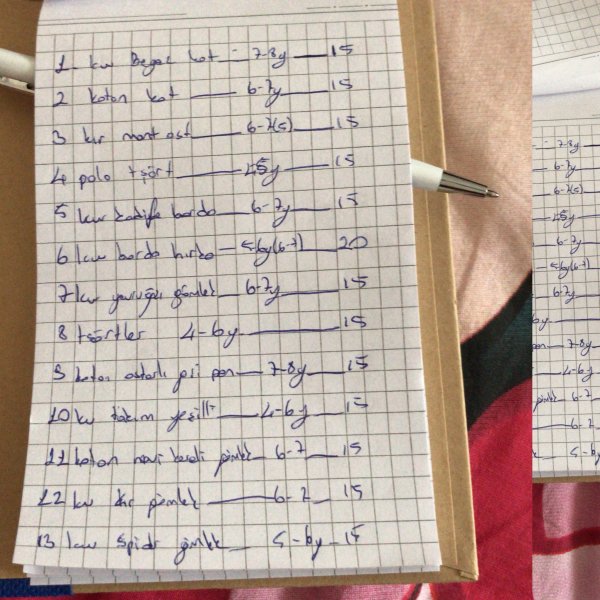 1- kw Beyaz kot - 7-8y — 15
2 koton kot — 6-7y — 15
3 kw mont ast — 6-7(5) — 15
4 polo tşört — 45y — 15
5 kw kadife bordo — 6-7y — 15
6 kw bordo hırka — 56y(6-7) 20
7 kw gömlek — 6-7y — 15
8 tşörtler 4-6y — 15
9 koton astarlı gri pan — 7-8y — 15
10 kw takım yeşilli — 4-6y — 15
11 koton mavi gömlek — 6-7 — 15
12 kw gömlek — 6-7 — 15
13 kw spidr gömlek — 5-6y — 15
7-8y
6-7y
6-7(5)
45y
6-7y
56y(6-7)
6-7y
6y
pan — 7-8y
4-6y
6-7
6-7
5-6y